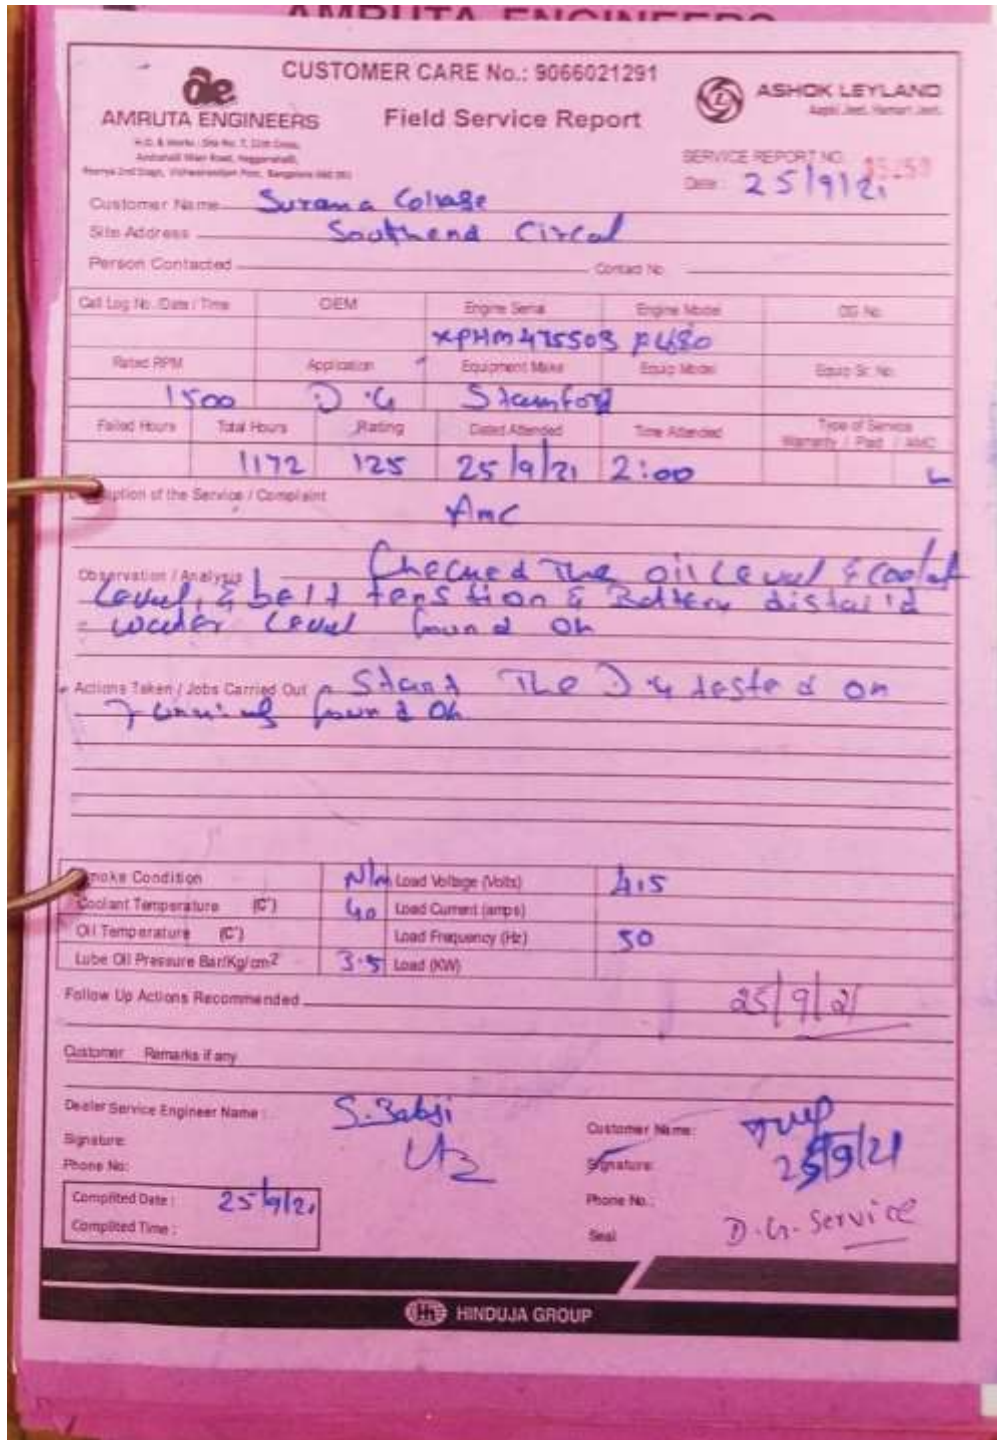 AMRUTA ENGINEERS
CUSTOMER CARE No.: 9066021291
ae
AMRUTA ENGINEERS
Field Service Report
ASHOK LEYLAND
Aapki Jeet. Hamari Jeet.
H.O. & Works : Site No. 7, 11th Cross,
SERVICE REPORT NO.
Date : 25/9/21
Customer Name Surana Collage
Site Address Southend Circal
Person Contacted Contact No.
Call Log No. /Date / Time OEM Engine Serial Engine Model DG No.
XPHM475503
Rated RPM Application Equipment Make Equip Model Equip Sr. No.
1500 D.G Stamford
Failed Hours Total Hours Rating Dated Attended Time Attended Type of Service
Warranty / Paid / AMC
1172 125 25/9/21 2:00
Description of the Service / Complaint
Amc
Observation / Analysis Checked The oil Level &
Level, & belt & Battery
water Level found Ok
Actions Taken / Jobs Carried Out Start The D.G tested on
found Ok
Smoke Condition Load Voltage (Volts) 415
Coolant Temperature (C°) 40 Load Current (amps)
Oil Temperature (C°) Load Frequency (Hz) 50
Lube Oil Pressure Bar/Kg/cm2 3.5 Load (KW)
Follow Up Actions Recommended 25/9/21
Customer Remarks if any
Dealer Service Engineer Name : S. Babji
Customer Name:
Signature:
25/9/21
Signature:
Phone No:
Complited Date : 25/9/21
Phone No.:
Complited Time :
Seal D.G. Service
HINDUJA GROUP